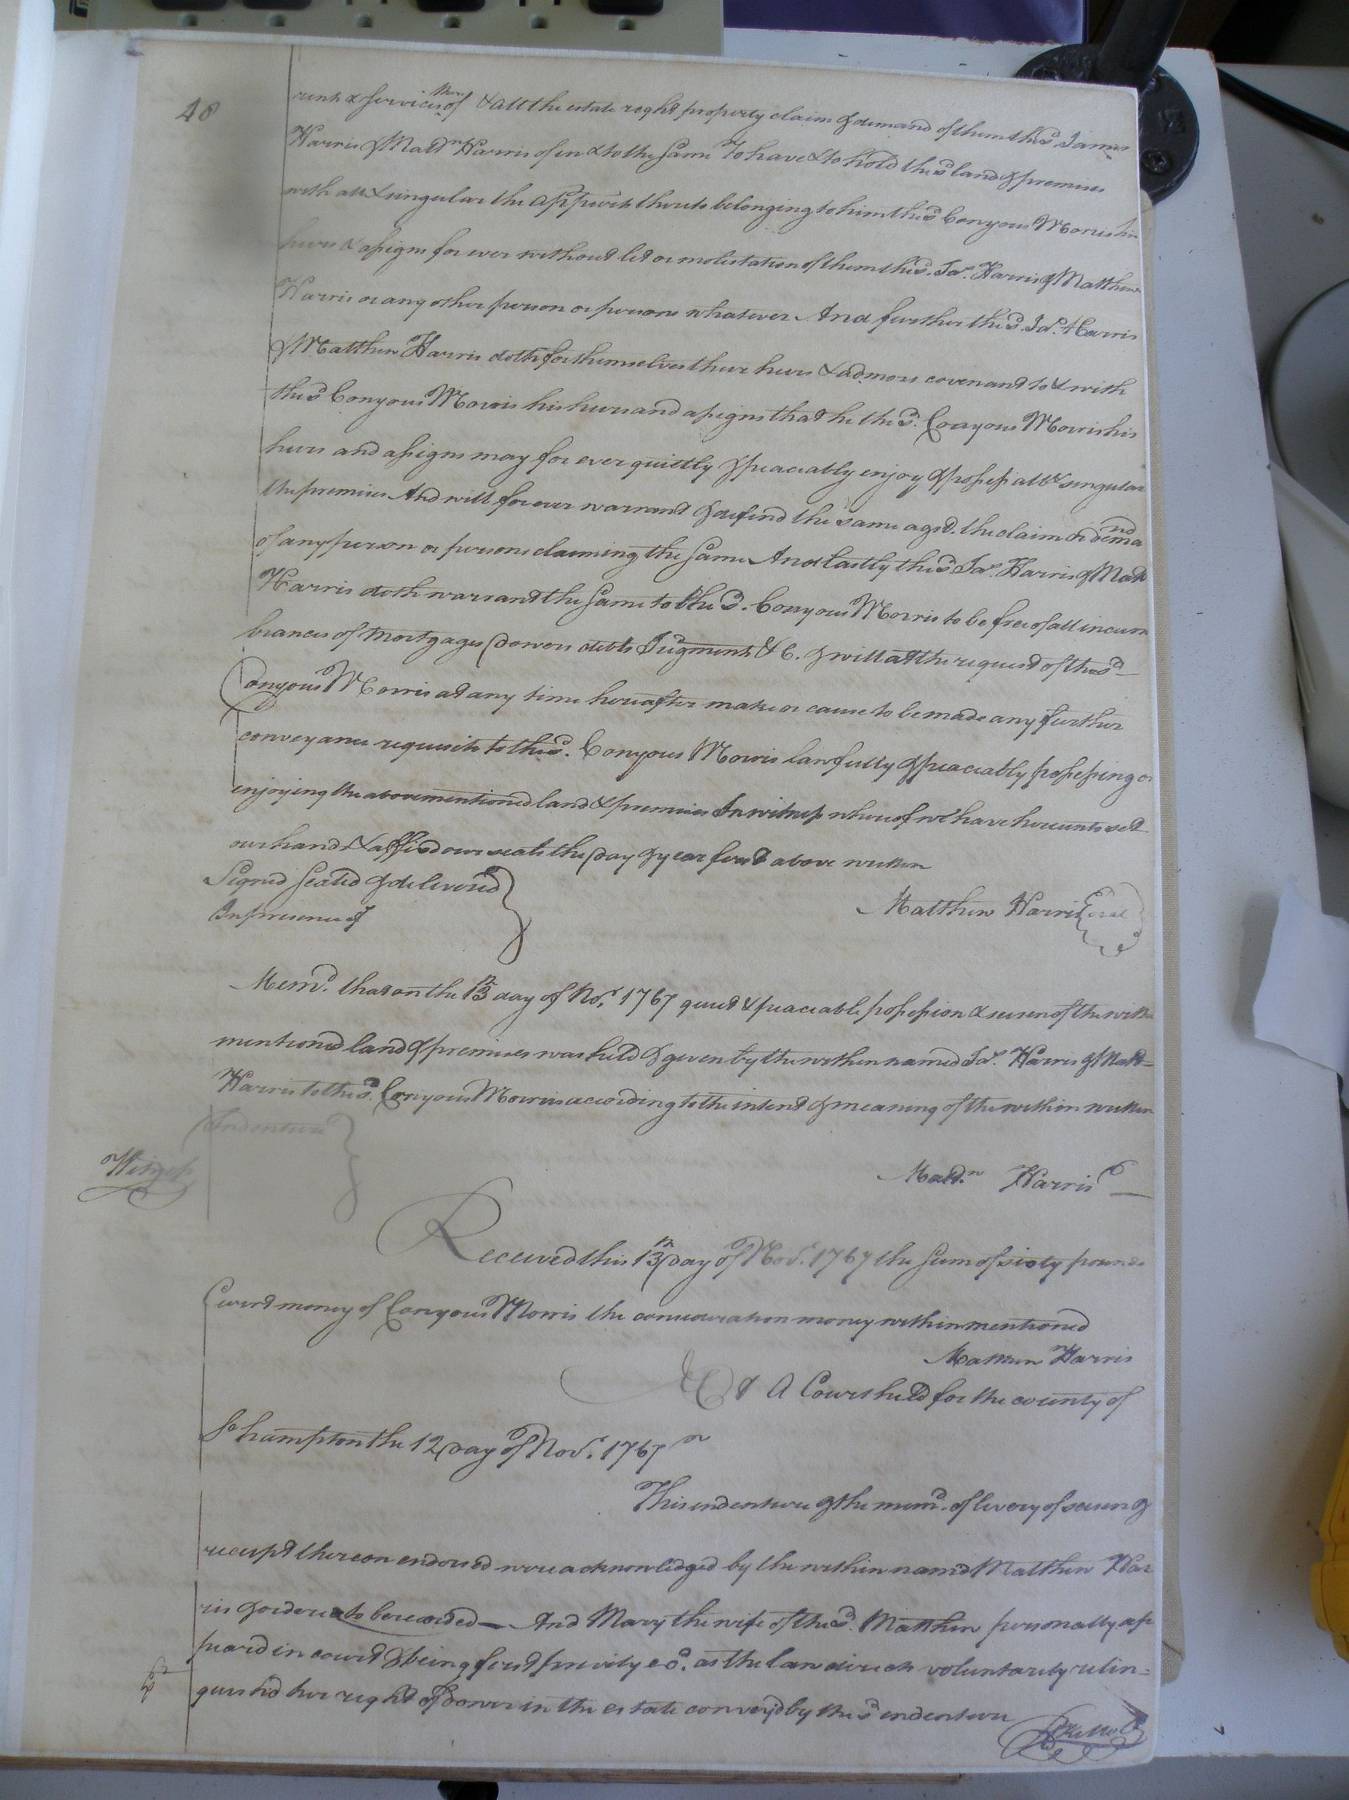 48
rents & services thereof & all the estate right property claim & demand of them the sd. James
Harris & Mattw Harris of in & to the same To have & to hold the sd land & premises
with all & singular the appurts thereto belonging to him the sd Conyous Morris his
heirs & assigns for ever without let or molestation of them the sd. Jas. Harris & Matthew
Harris or any other person or persons whatever And further the sd. Jas. Harris
& Matthew Harris doth for themselves their heirs & admors covenant to & with
the sd Conyous Morris his heirs and assigns that he the sd. Conyous Morris his
heirs and assigns may for ever quietly & peaceably enjoy & possess all & singular
the premises And will forever warrant & defend the same agst. the claim & demand
of any person or persons claiming the same And lastly the sd Jas. Harris & Matt
Harris doth warrant the same to the sd. Conyous Morris to be free of all incum
brances of Mortgages Dowers debts Judgments &C. & will at the request of the sd
Conyous Morris at any time hereafter make or cause to be made any further
conveyance requisite to the sd. Conyous Morris lawfully & peaceably possessing or
enjoying the abovementioned land & premises In witness whereof we have hereunto set
our hands & affixd our seals the Day & year first above written
Signed Sealed & delivered
In presence of
Matthew Harris Seal
Memd. that on the 13th day of Nov. 1767 quiet & peaceable possession & seisen of the within
mentioned land & premises was held & given by the within named Jas. Harris & Matt=
Harris to the sd. Conyous Morris according to the intent & meaning of the within written
Indenture
Witness
Mattw Harris
Received this 13th Day of Nov. 1767 the sum of sixty pounds
Curent money of Conyous Morris the consideration money within mentioned
Matthew Harris
At A Court held for the county of
So hampton the 12 Day of Nov. 1767
This indenture & the memd. of livery of seisen &
receipt thereon endorsed were acknowledged by the within named Matthew Har
ris & ordered to be recorded — And Mary the wife of the sd. Matthew personally ap
peard in court & being first privily &c. as the law directs voluntarily relin=
quishd her right of Dower in the estate conveyd by the sd indenture